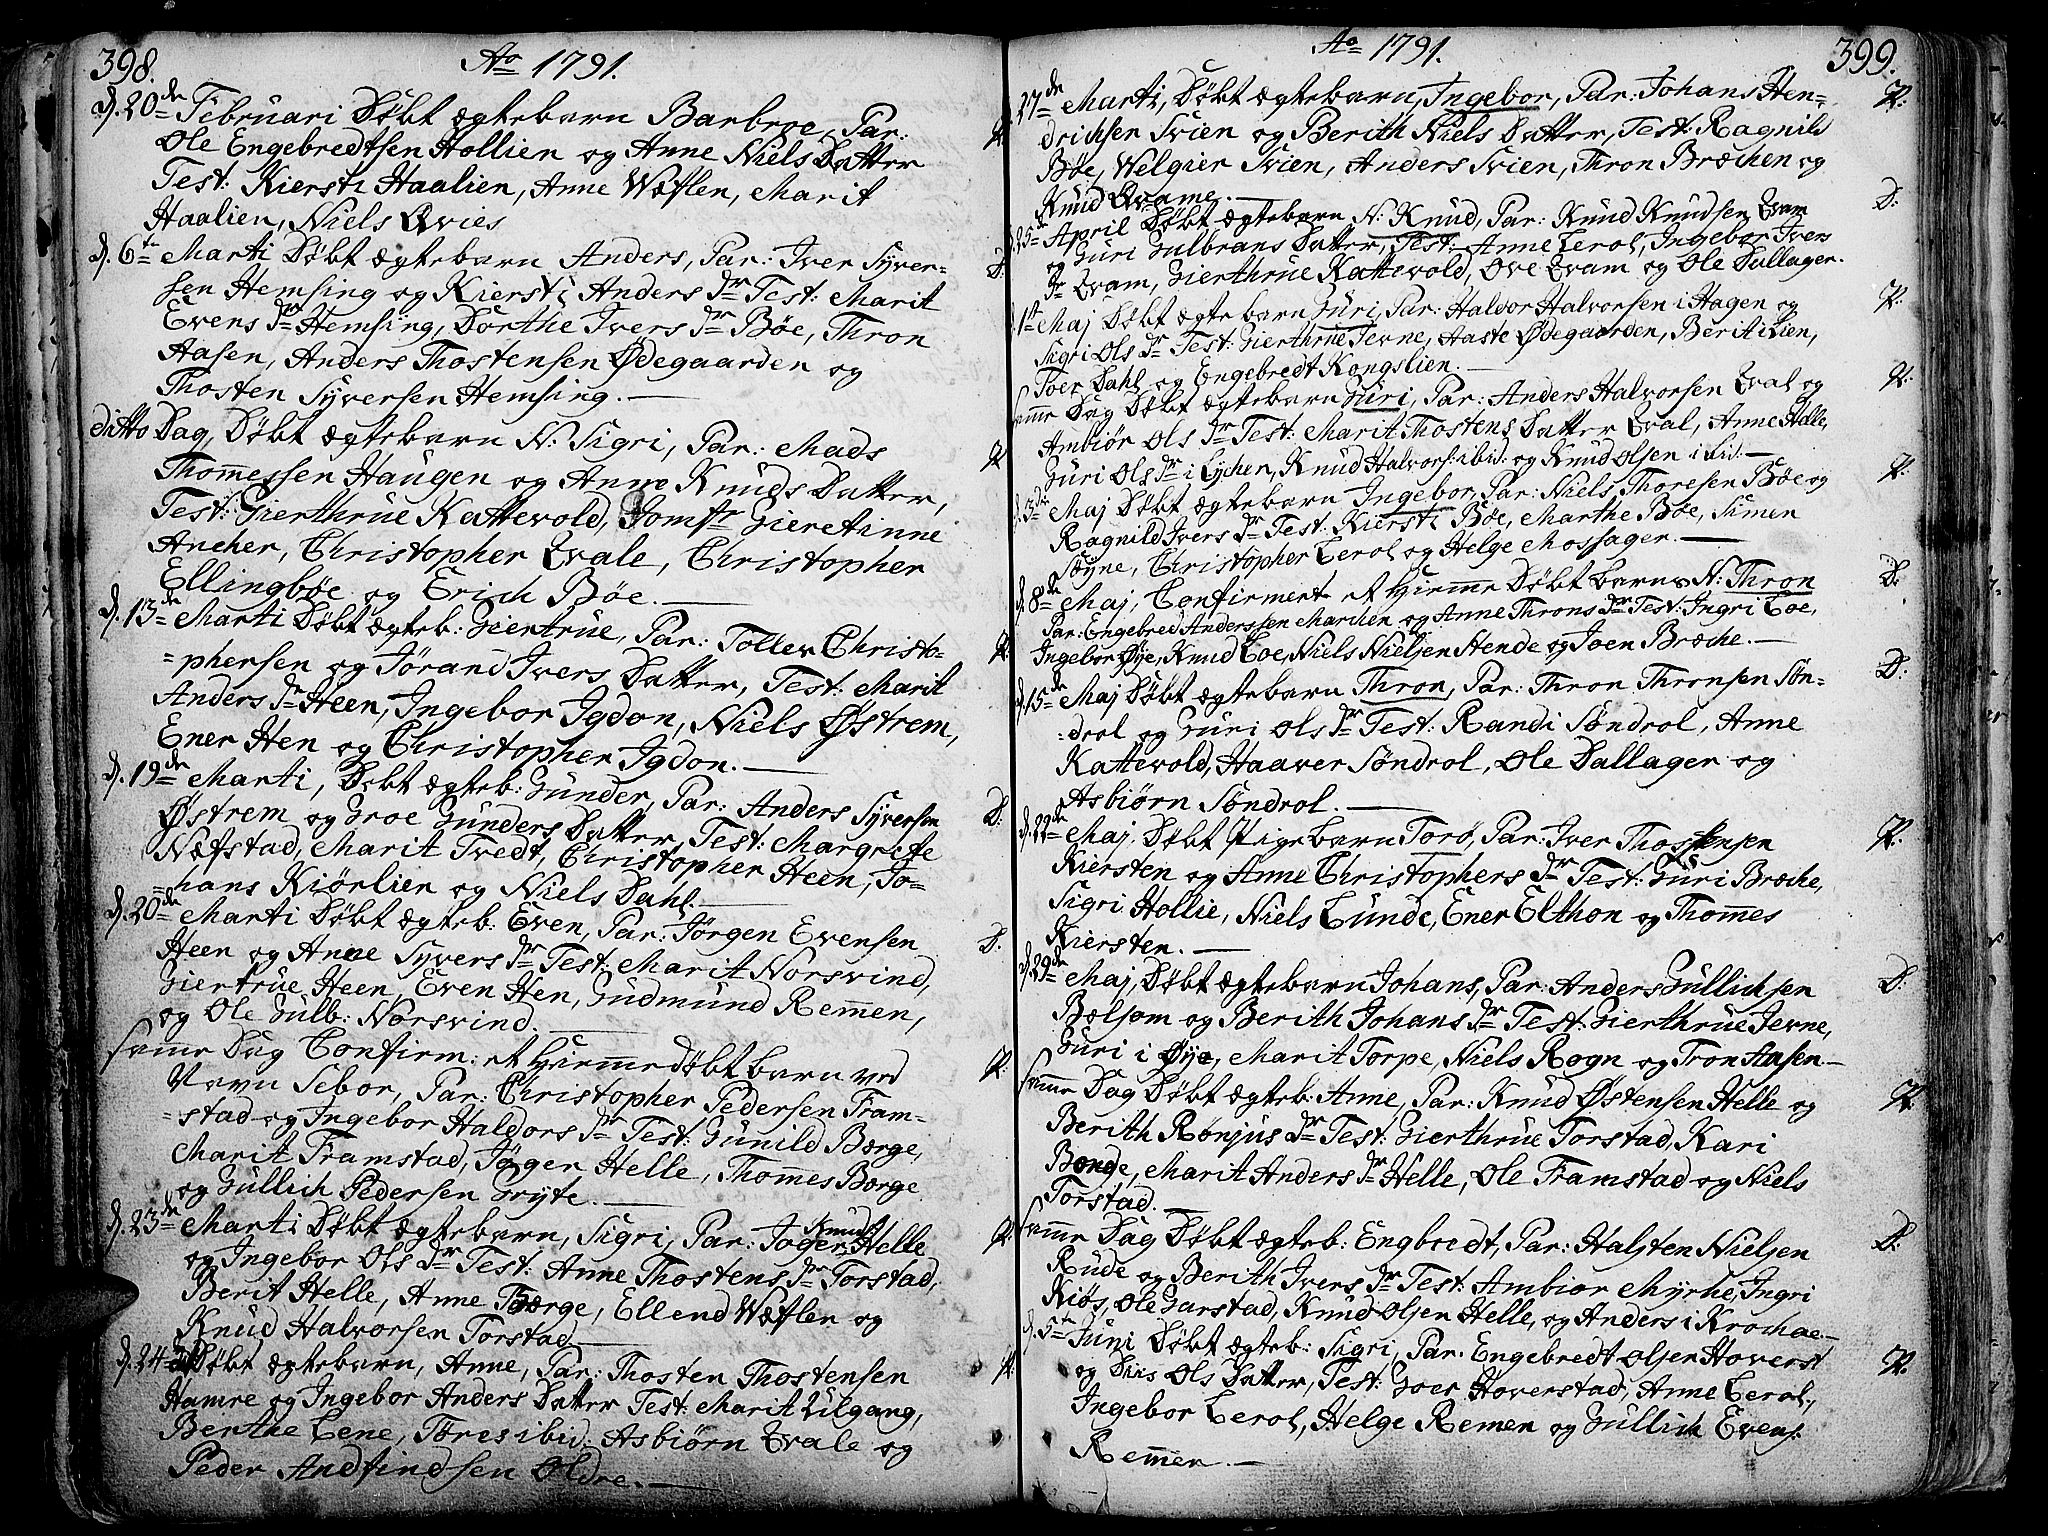 398.
Ao 1791.
d. 20de Februari Døbt ægtebarn Barbroe, Par:
Ole Engebredtsen Hollien og Anne Niels Datter
Test: Kiersti Haalien, Anne Wæflen, Marit
Haalien, Niels Qvies
d. 6te Marti Døbt ægtebarn Anders, Par: Iver Syver-
sen Hemsing og Kiersti Anders Dr Test: Marit
Evens Dr Hemsing, Dorthe Ivers Dr Bøe, Thron
Aasen, Anders Thostensen Ødegaarden og
Thosten Syversen Hemsing.
ditto Dag, Døbt ægtebarn N: Sigri, Par: Mads
Thom̄essen Haugen og Anne Knuds Datter,
Test: Gierthrue Kattevold, Jomfr Gieretinne
Ancher, Christopher Qvale, Christopher
Ellingbøe og Erich Bøe.
d. 13de Marti Døbt ægteb: Giertrue, Par: Tollev Christo-
=phersen og Jørand Ivers Datter, Test: Marit
Anders Dr Heen, Ingebor Igdon, Niels Østrem,
Ener Hen og Christopher Igdon.
d. 19de Marti, Døbt ægteb: Gunder, Par: Anders Syversen
Østrem og Groe Gunders Datter, Test: Margrete
Næfstad, Marit Tvedt, Christopher Heen, Jo-
=hans Kiørlien og Niels Dahl.
d. 20de Marti Døbt ægteb: Even, Par: Jørgen Evensen
Heen og Anne Syvers Dr Test: Marit Norsvind,
Giertrue Heen, Even Hen, Gudmund Rem̄en,
og Ole Gulb: Norsvind.
sam̄e Dag Confirm: et Hiem̄edøbt barn ved
Navn Sebor, Par: Christopher Pedersen Fram-
=stad og Ingebor Haldors Dr Test: Gunild Børge,
Marit Framstad, Jøger Helle, Thom̄es Børge
og Gullich Pedersen Gryte.
d. 23de Marti Døbt ægtebarn, Sigri, Par: Jøger Knuds: Helle
og Ingebor Ols Dr Test: Anne Thostens Dr Torstad,
Berit Helle, Anne Børge, Ellend Wæflen og
Knud Halvorsen Torstad
d. 24de Døbt ægtebarn, Anne, Par: Thosten Thostensen
Hamre og Ingebor Anders Datter Test: Marit Lilgang,
Berthe Lene, Tøres ibid: Asbiørn Qvale og
Peder Andfindsen Oldre.
399.
Ao 1791.
27de Marti, Døbt ægtebarn, Ingebor, Par: Johans Hen-
drichsen Svien og Berith Niels Datter, Test: Ragnild
Bøe, Welgier Svien, Anders Svien, Thron Bræchen og
Knud Qvame.
d. 25de April Døbt ægtebarn N: Knud, Par: Knud Knudsen Qvam
og Guri Gulbrans Datter, Test: Anne Lerol, Ingebor Ivers
Dr Qvam, Gierthrue Kattevold, Ove Qvam og Ole Dallager.
d. 1st Maj Døbt ægtebarn Guri, Par: Haldor Halvorsen i Hagen og
Sigri Ols Dr Test: Gierthrue Jevne, Haste Ødegaarden, Berit Lien,
Toer Dahl og Engebredt Kongslien.
sam̄e Dag Døbt ægtebarn Guri, Par: Anders Halvorsen Qval og
Ambiør Ols Dr Test: Marit Thostens Datter Qval, Anne Helle,
Guri Ols Dr i Lychen, Knud Halvors: ibid: og Knud Olsen i Lid:
d. 3die Maj Døbt ægtebarn Ingebor, Par: Niels Thoresen Bøe og
Ragnild Ivers Dr Test: Kiersti Bøe, Marthe Bøe, Simen
Søyne, Christopher Lerol og Helge Mossager.
d. 8de Maj, Confirmert et Hiem̄e Døbt barn N: Thron
Par: Engebred Anderssen Marchen og Anne Throns Dr Test: Ingri Loe,
Ingebor Øye, Knud Loe, Niels Nielsen Hende og Joen Bræche.
d. 15de Maj Døbt ægtebarn Thron, Par: Thron Thronsen Søn-
=drol og Guri Ols Dr Test: Randi Søndrol, Anne
Kattevold, Haaver Søndrol, Ole Dallager og
Asbiørn Søndrol.
d. 22de Maj, Døbt Pigebarn Torø, Par: Iver Thostensen
Kiersten og Anne Christophers Dr Test: Guri Bræche,
Sigri Hollie, Niels Lunde, Ener Elthon og Thom̄es
Kiersten.
d. 29de Maj, Døbt ægtebarn Johans, Par: Anders Gullichsen
Bolsom og Berith Johans Dr Test: Gierthrue Jevne,
Guri i Øye, Marit Torpe, Niels Rogn og Tron Aasen.
sam̄e Dag Døbt ægteb: Anne, Par: Knud Østensen Helle og
Berith Rønjus Dr Test: Gierthrue Torstad, Kari
Bonde, Marit Anders Dr Helle, Ole Framstad og Niels
Torstad.
sam̄e Dag Døbt ægteb: Engbredt, Par: Halsten Nielsen
Rude og Berith Ivers Dr Test: Ambiør Myrhe, Ingri
Kiøs, Ole Garstad, Knud Olsen Helle, og Anders i Krochae
d. 5te Juni Døbt ægteb: Sigri, Par: Engebredt Olsen Hoverst
og Ols Datter, Test: Goer Hoverstad, Anne Lerol,
Ingebor Lerol, Helge Remen og Gullich Evens:
Rem̄en.